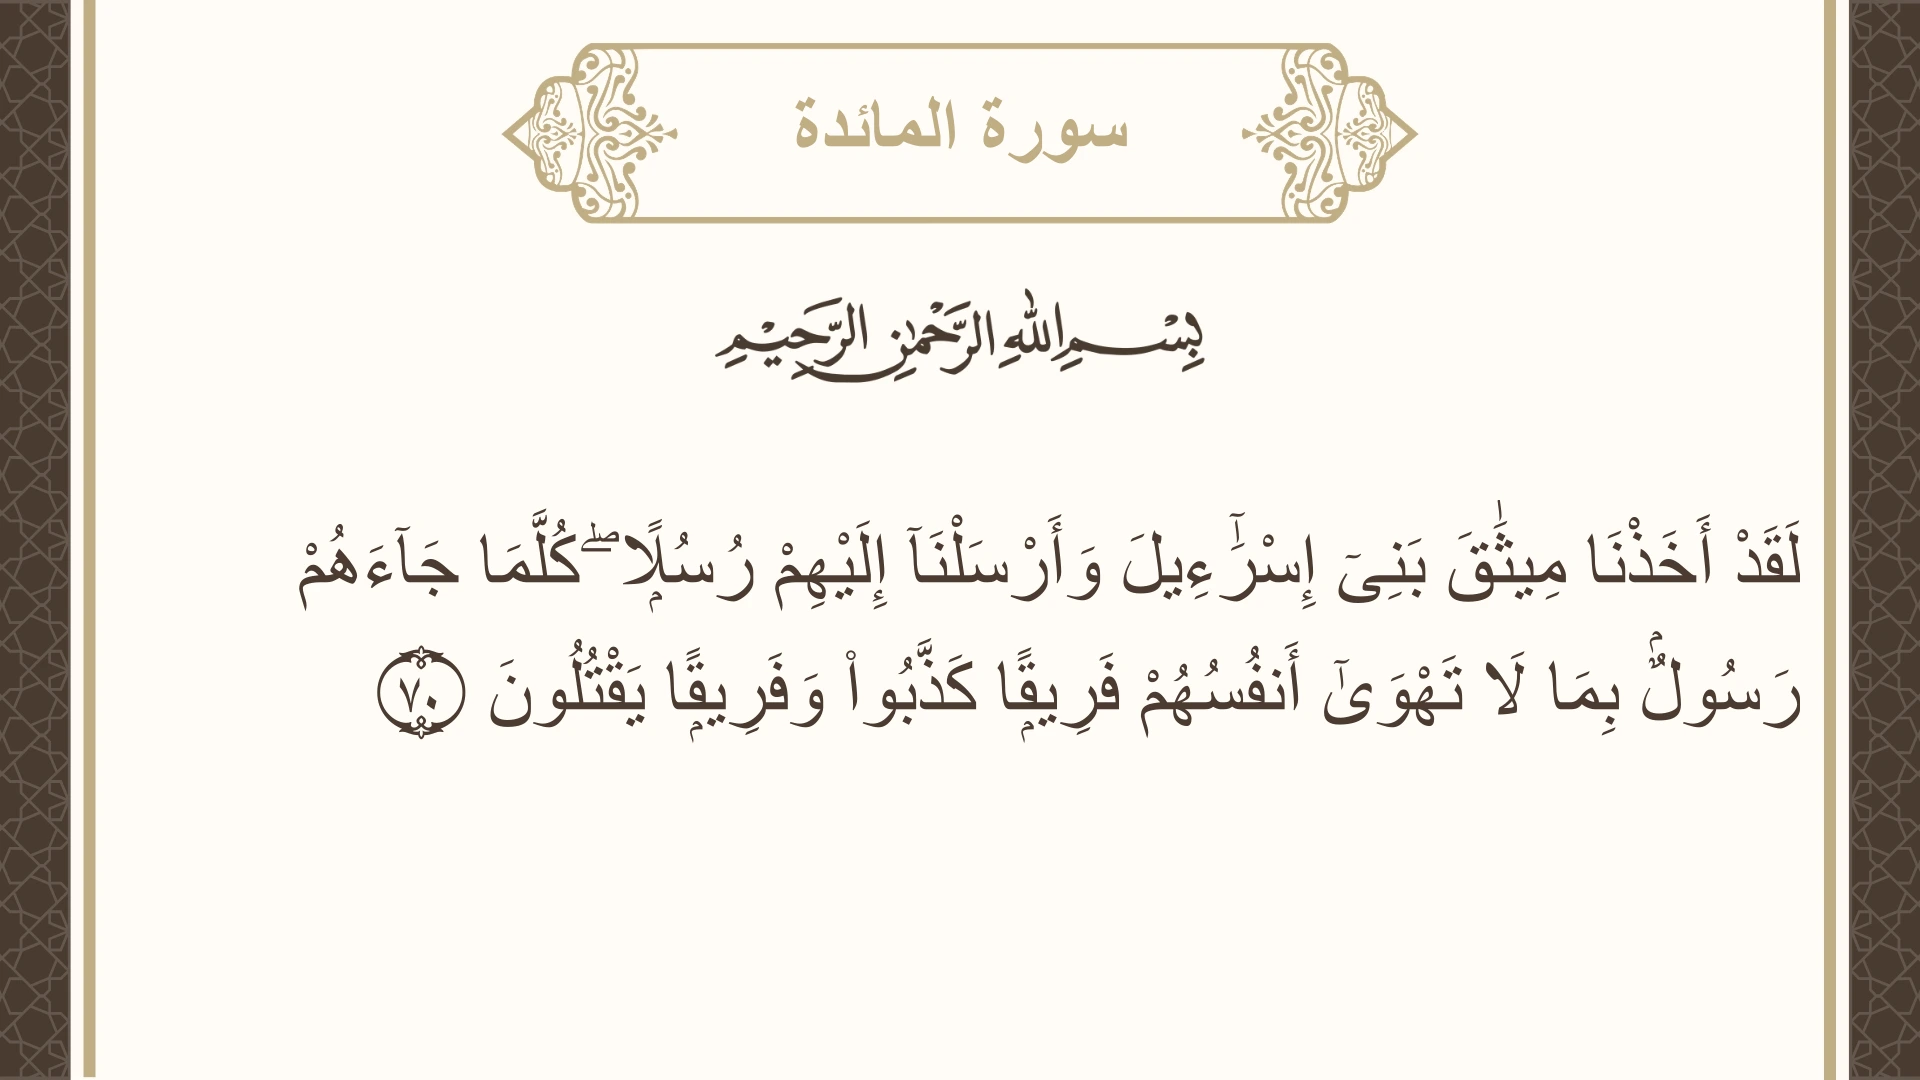 سورة المائدة
بِسْمِ اللهِ الرَّحْمٰنِ الرَّحِيْمِ
لَقَدْ أَخَذْنَا مِيثَٰقَ بَنِىٓ إِسْرَٰٓءِيلَ وَأَرْسَلْنَآ إِلَيْهِمْ رُسُلًۭا ۖ كُلَّمَا جَآءَهُمْ
رَسُولٌۢ بِمَا لَا تَهْوَىٰٓ أَنفُسُهُمْ فَرِيقًۭا كَذَّبُوا۟ وَفَرِيقًۭا يَقْتُلُونَ ٧٠